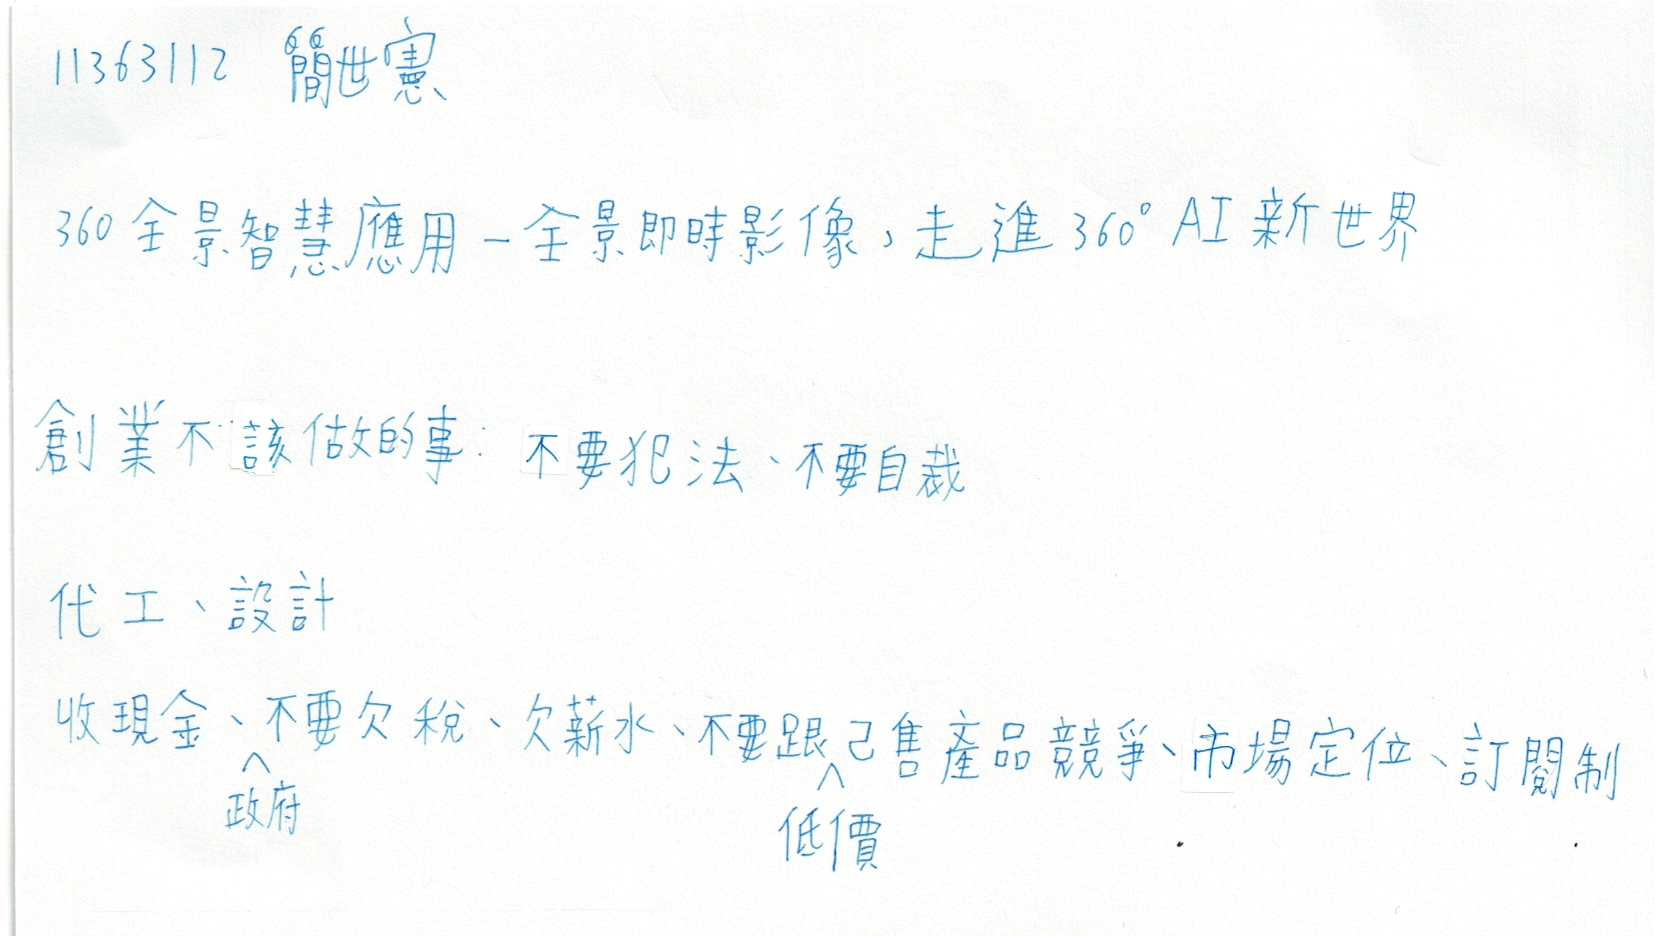 11363112 簡世憲
360全景智慧應用-全景即時影像，走進360°AI新世界
創業不該做的事: 不要犯法、不要自裁
代工、設計
收現金、不要欠稅、欠薪水、不要跟己售產品競爭、市場定位、訂閱制
政府 低價